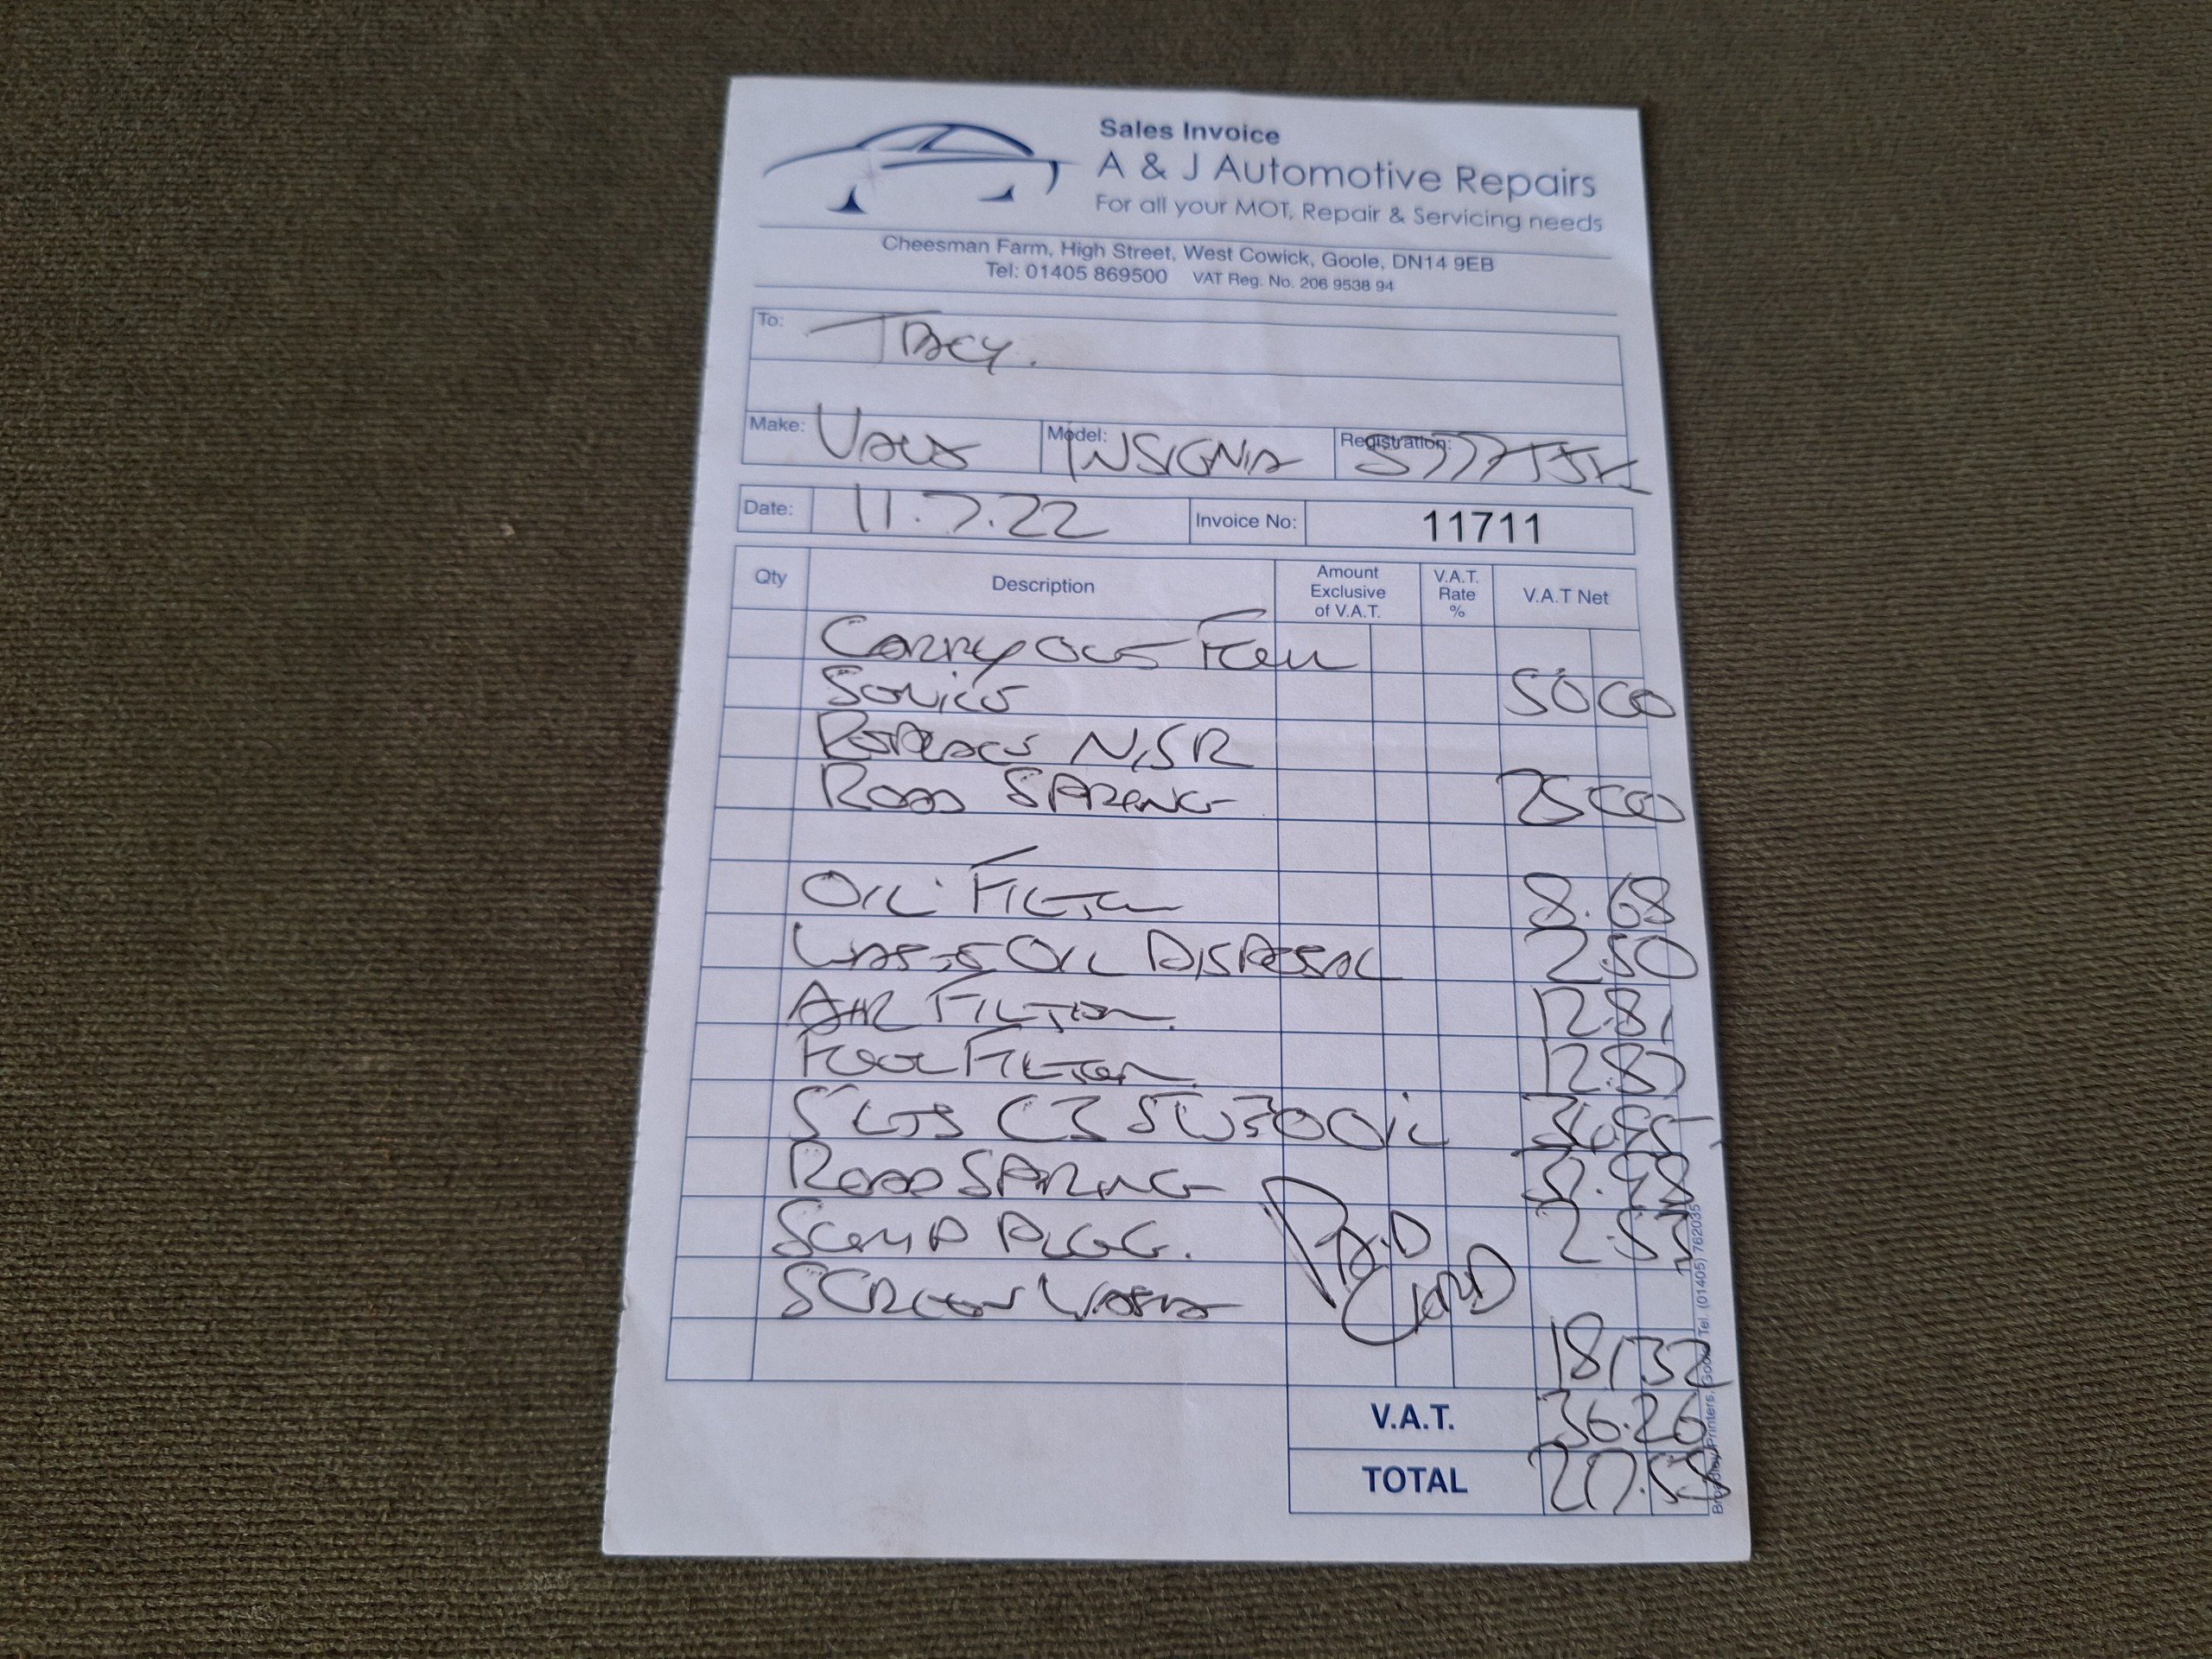 Sales Invoice
A & J Automotive Repairs
For all your MOT, Repair & Servicing needs
Cheesman Farm, High Street, West Cowick, Goole, DN14 9EB
Tel: 01405 869500 VAT Reg. No. 206 9538 94
To: TRACY.
Make: VAUX Model: INSIGNIA Registration:
Date: 11.7.22 Invoice No: 11711
Qty Description Amount Exclusive of V.A.T. V.A.T. Rate % V.A.T Net
CARRY OUT FULL
SERVICE 50 00
REPLACE N/S/R
ROAD SPRING 25 00
OIL FILTER 8.68
WASTE OIL DISPOSAL 2.50
AIR FILTER 12.81
FUEL FILTER 12.87
5 LTS C3 5W30 OIL 34.95
ROAD SPRING 31.98
SUMP PLUG. 2.53
SCREEN WASH
PAID
CARD
181.32
V.A.T. 36.26
TOTAL 217.58
Broadley Printers, Goole Tel. (01405) 762035